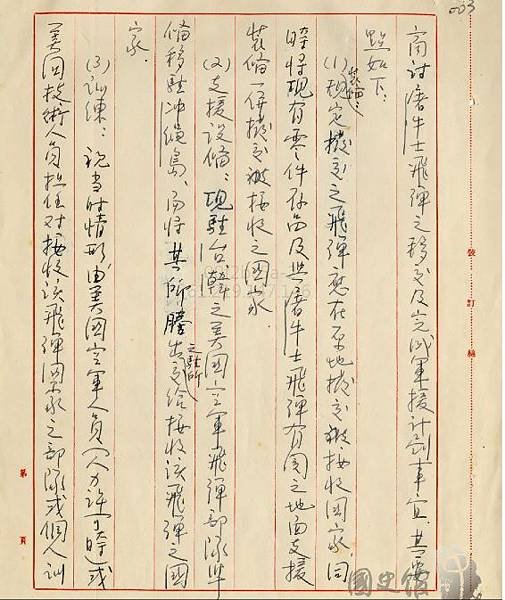 003
商討屠牛士飛彈之移交及完成軍援計劃事宜,其要
點如下:
(1)裝備:規定撥交之飛彈應在原地撥交被接收國家,同
時將現有零件存品及與屠牛士飛彈有關之地面支援
裝備一併撥交被接收之國家。
(2)支援設備:現駐台韓之美國空軍飛彈部隊準
備移駐沖繩島、而將其所騰出之駐所交給接收該飛彈之國
家.
(3)訓練:視當時情形由美國空軍人員(人力許可時)或
美國技術人員担任對接收該飛彈國家之部隊或個人訓
裝訂線
第 頁
國史館